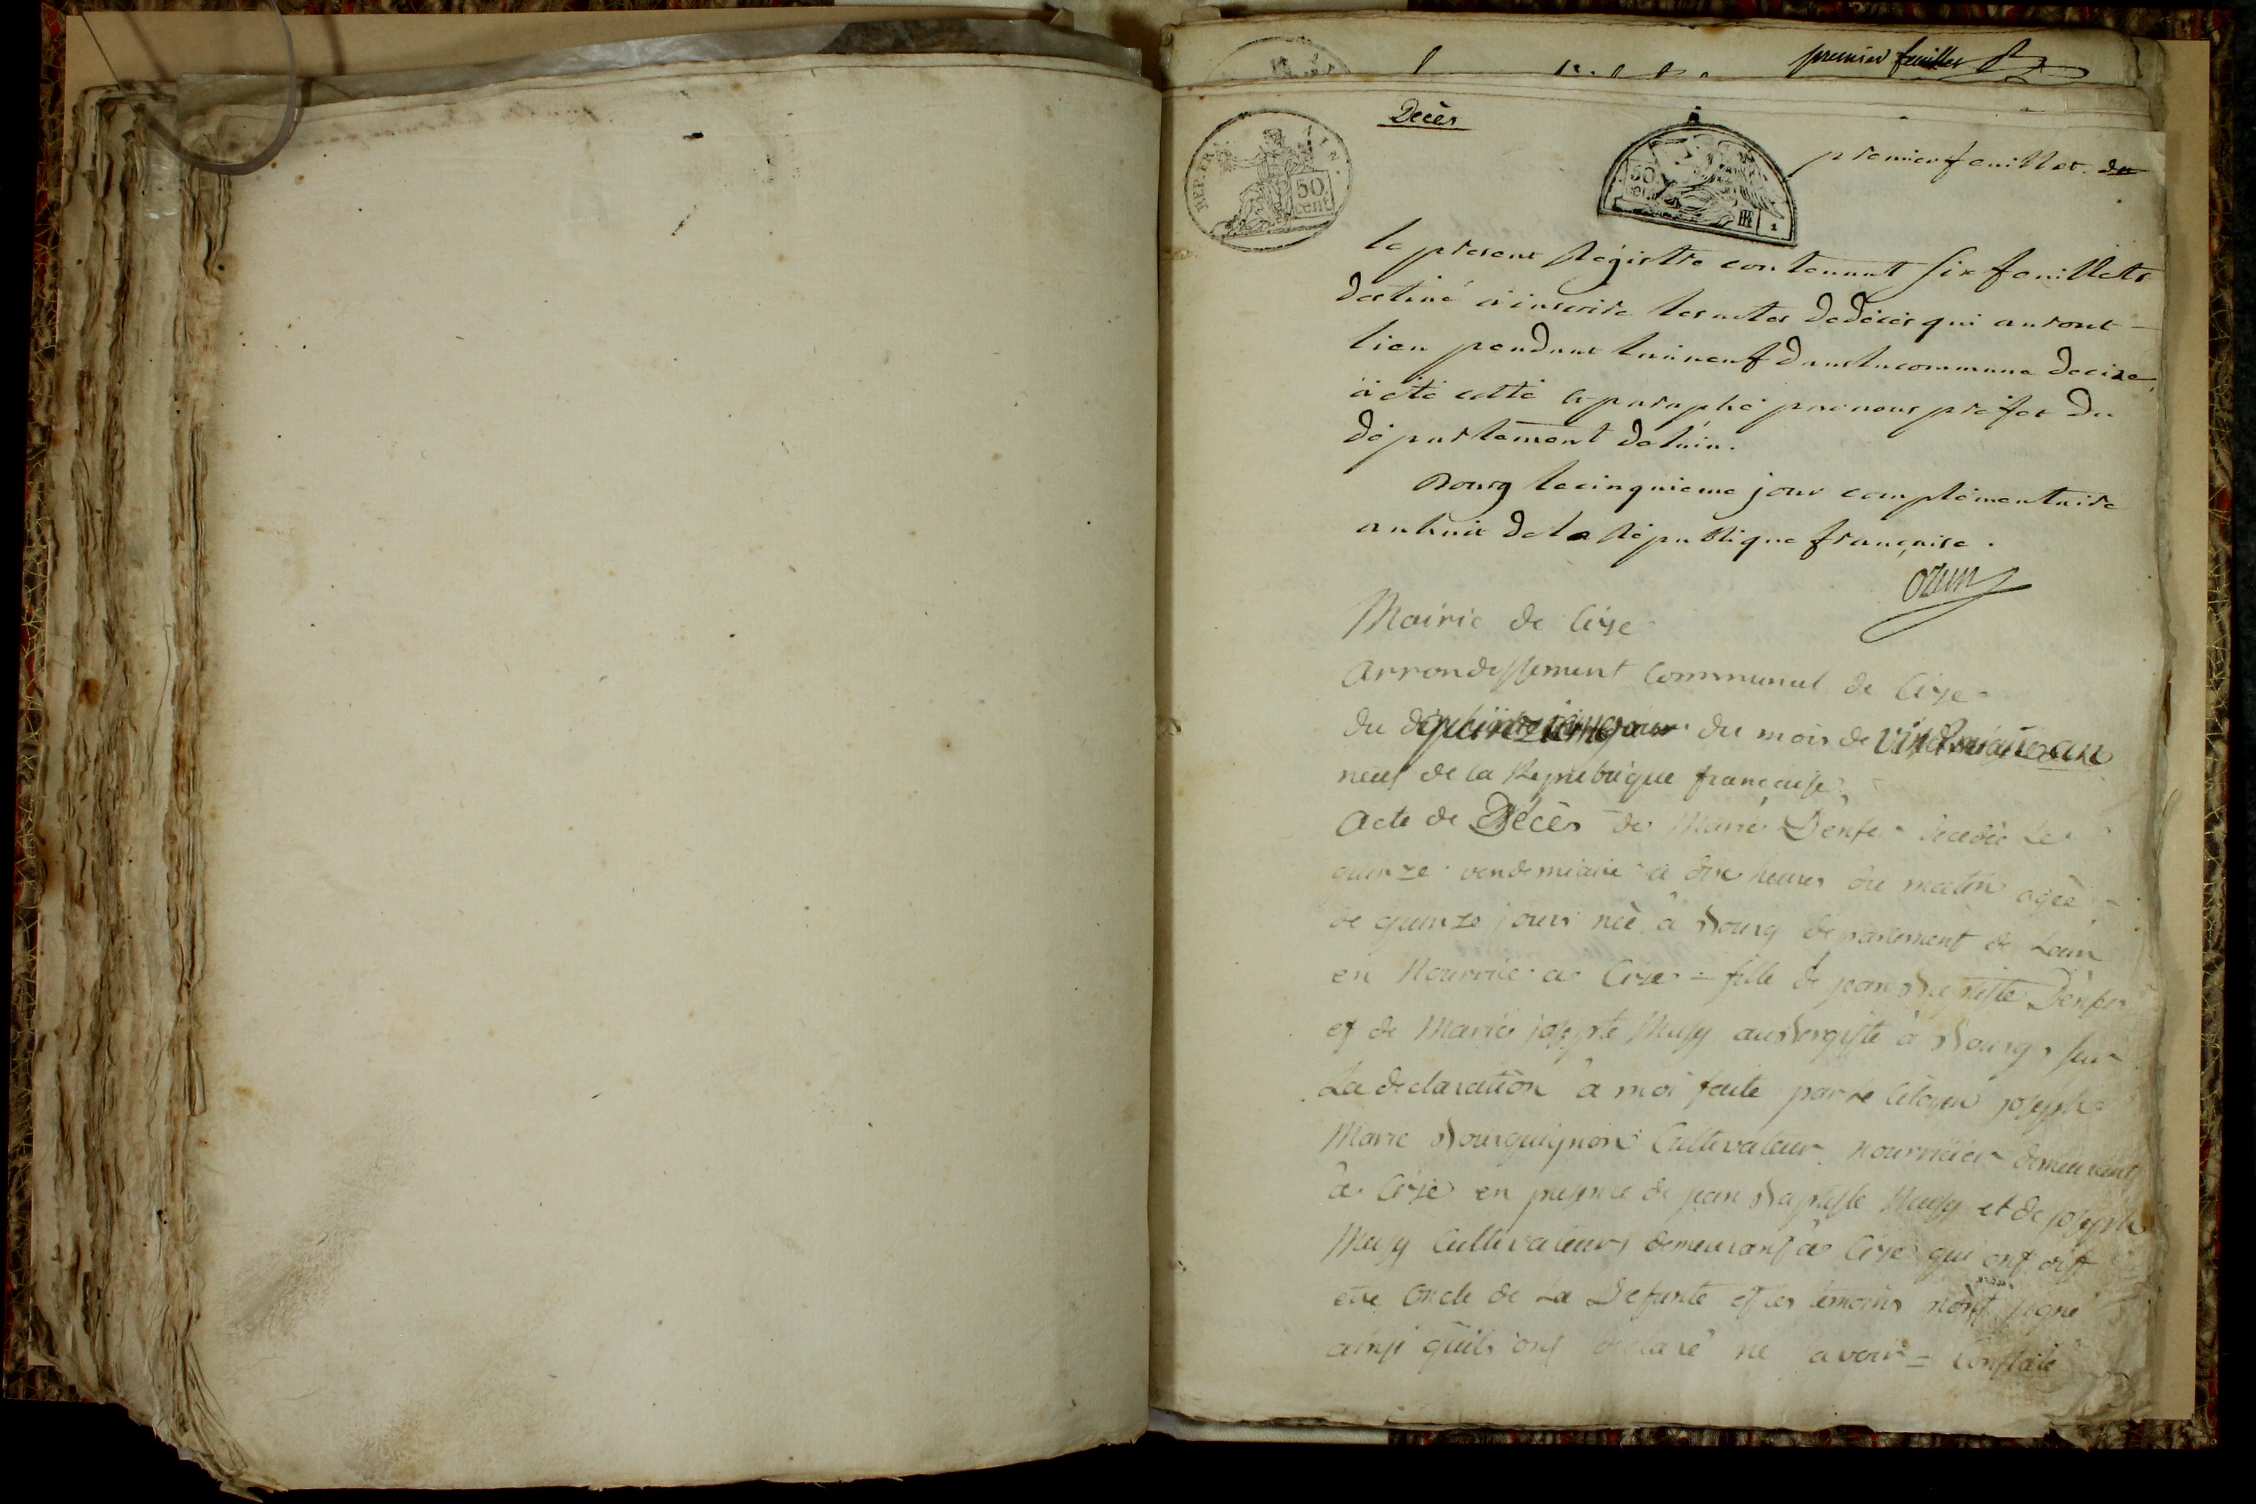 premier feuillet
Décès
REP. FRA
AIN.
50
cent
premier feuillet. du
le present Régistre contenant six feuillets
destiné à inscrire les actes de décès qui auront
lieu pendant l'an neuf dans la commune de cize,
à été cotté & paraphé par nous préfet du
département de l'ain.
Bourg le cinquieme jour complémentaire
an huit de la République française.
ozun
Mairie de Cize
arrondissement Communal de Cize
du quinzieme jour du mois de vindemiaire an
neuf de la Republique francaise
Acte de Décès de Marie Denfer decedée le
quinze vendemiaire a dix heures du matin agée
de quinze jours née a Bourg departement de Lain
en Nourrice a Cize = fille de jean Baptiste Denfer
et de Marie josephte Musy aubergiste a Bourg, sur
La declaration a moi faite par le Citoyen joseph
Marie Bourguignon Cultivateur nourricier demeurant
a Cize en presence de jean Baptiste Musy et de joseph
Musy Cultivateurs demeurant a Cize qui ont dit
etre oncle de La Defunte et les temoins n'ont signé
ainsi quils ont declaré ne savoir = Constaté